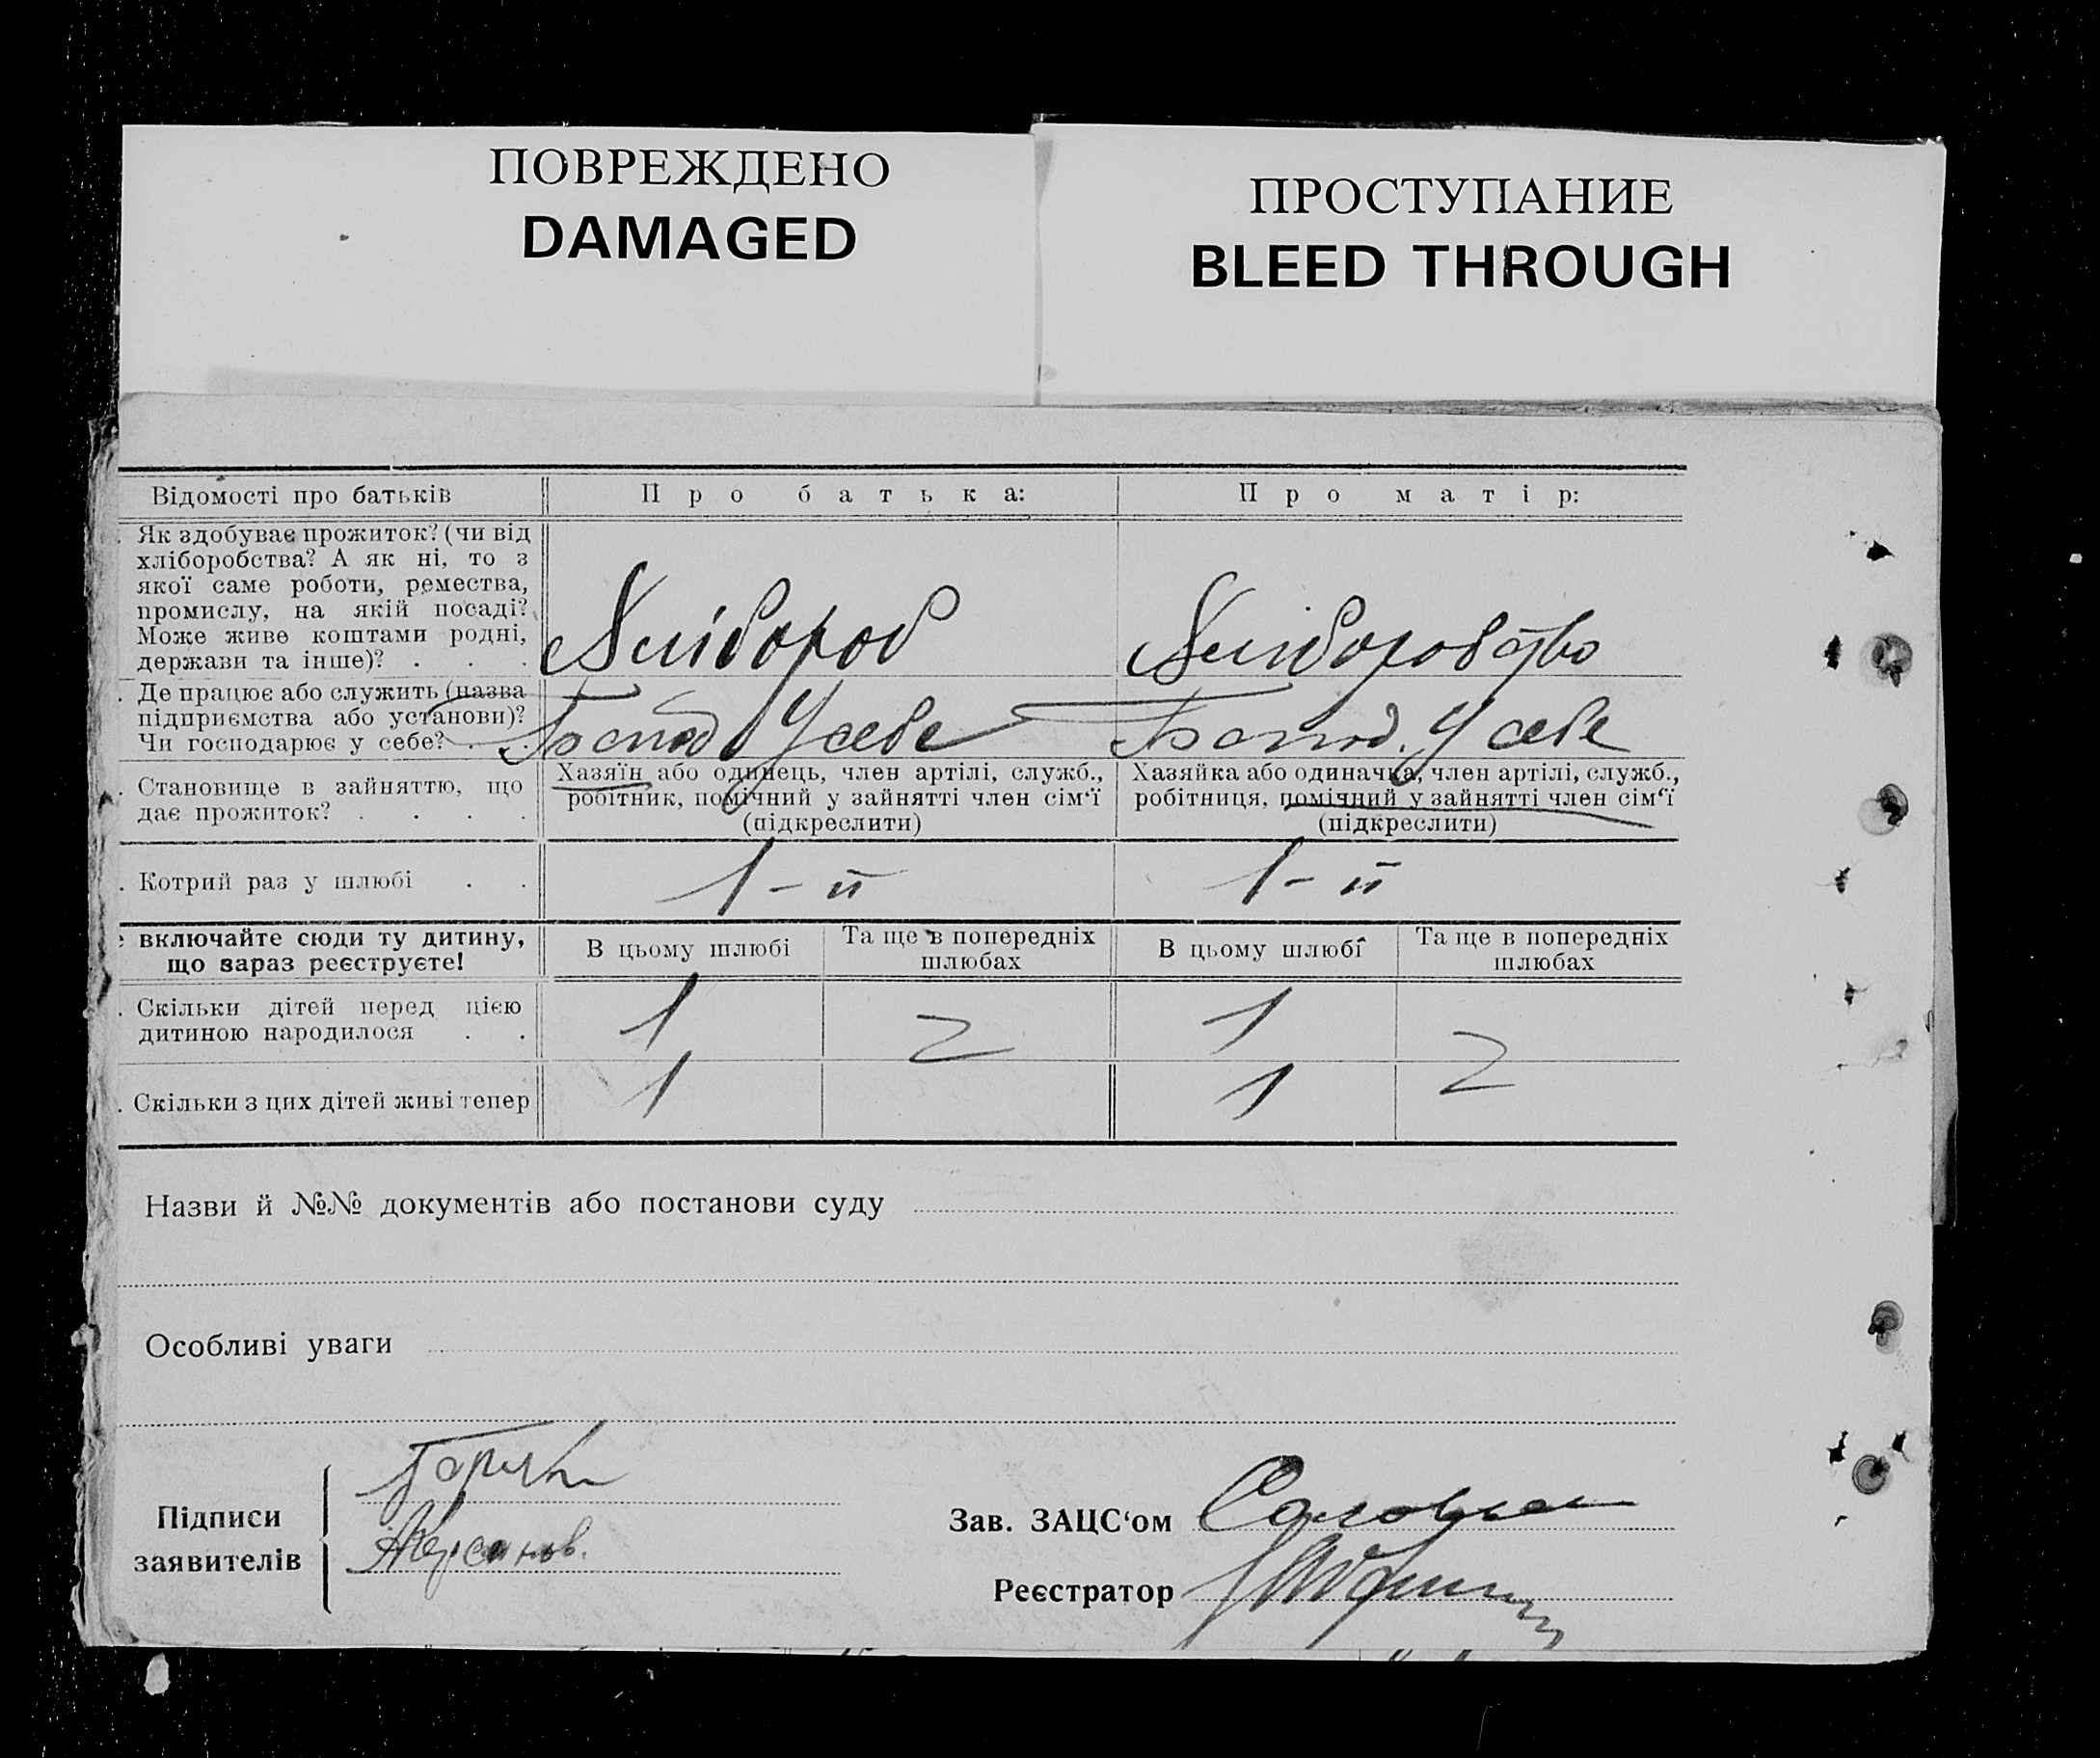 ПОВРЕЖДЕНО
DAMAGED
ПРОСТУПАНИЕ
BLEED THROUGH
Відомості про батьків
Про батька:
Про матір:
Як здобуває прожиток? (чи від
хліборобства? А як ні, то з
якої саме роботи, ремества,
промислу, на якій посаді?
Може живе коштами родні,
держави та інше)? . . .
Хлібороб
Хліборобство
. Де працює або служить (назва
підприємства або установи)?
Чи господарює у себе? . .
Господ У себе
Господ. У себе
. Становище в зайняттю, що
дає прожиток? . . . .
Хазяїн або одинець, член артілі, служб.,
робітник, помічний у зайнятті член сім‘ї
(підкреслити)
Хазяйка або одиначка, член артілі, служб.,
робітниця, помічний у зайнятті член сім‘ї
(підкреслити)
. Котрий раз у шлюбі . .
1-й
1-й
е включайте сюди ту дитину,
що зараз реєструєте!
В цьому шлюбі
Та ще в попередніх
шлюбах
В цьому шлюбі
Та ще в попередніх
шлюбах
. Скільки дітей перед цією
дитиною народилося . .
1
1
. Скільки з цих дітей живі тепер
1
1
Назви й №№ документів або постанови суду
Особливі уваги
Підписи
заявителів
Зав. ЗАЦС‘ом
Реєстратор